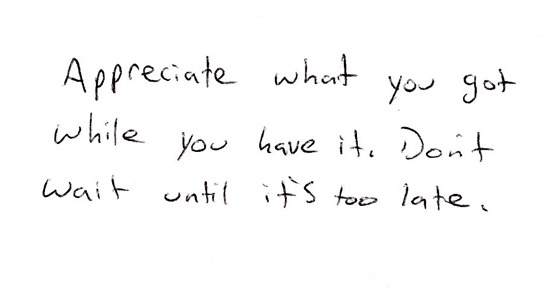 Appreciate what you got
while you have it. Don't
wait until it's too late.